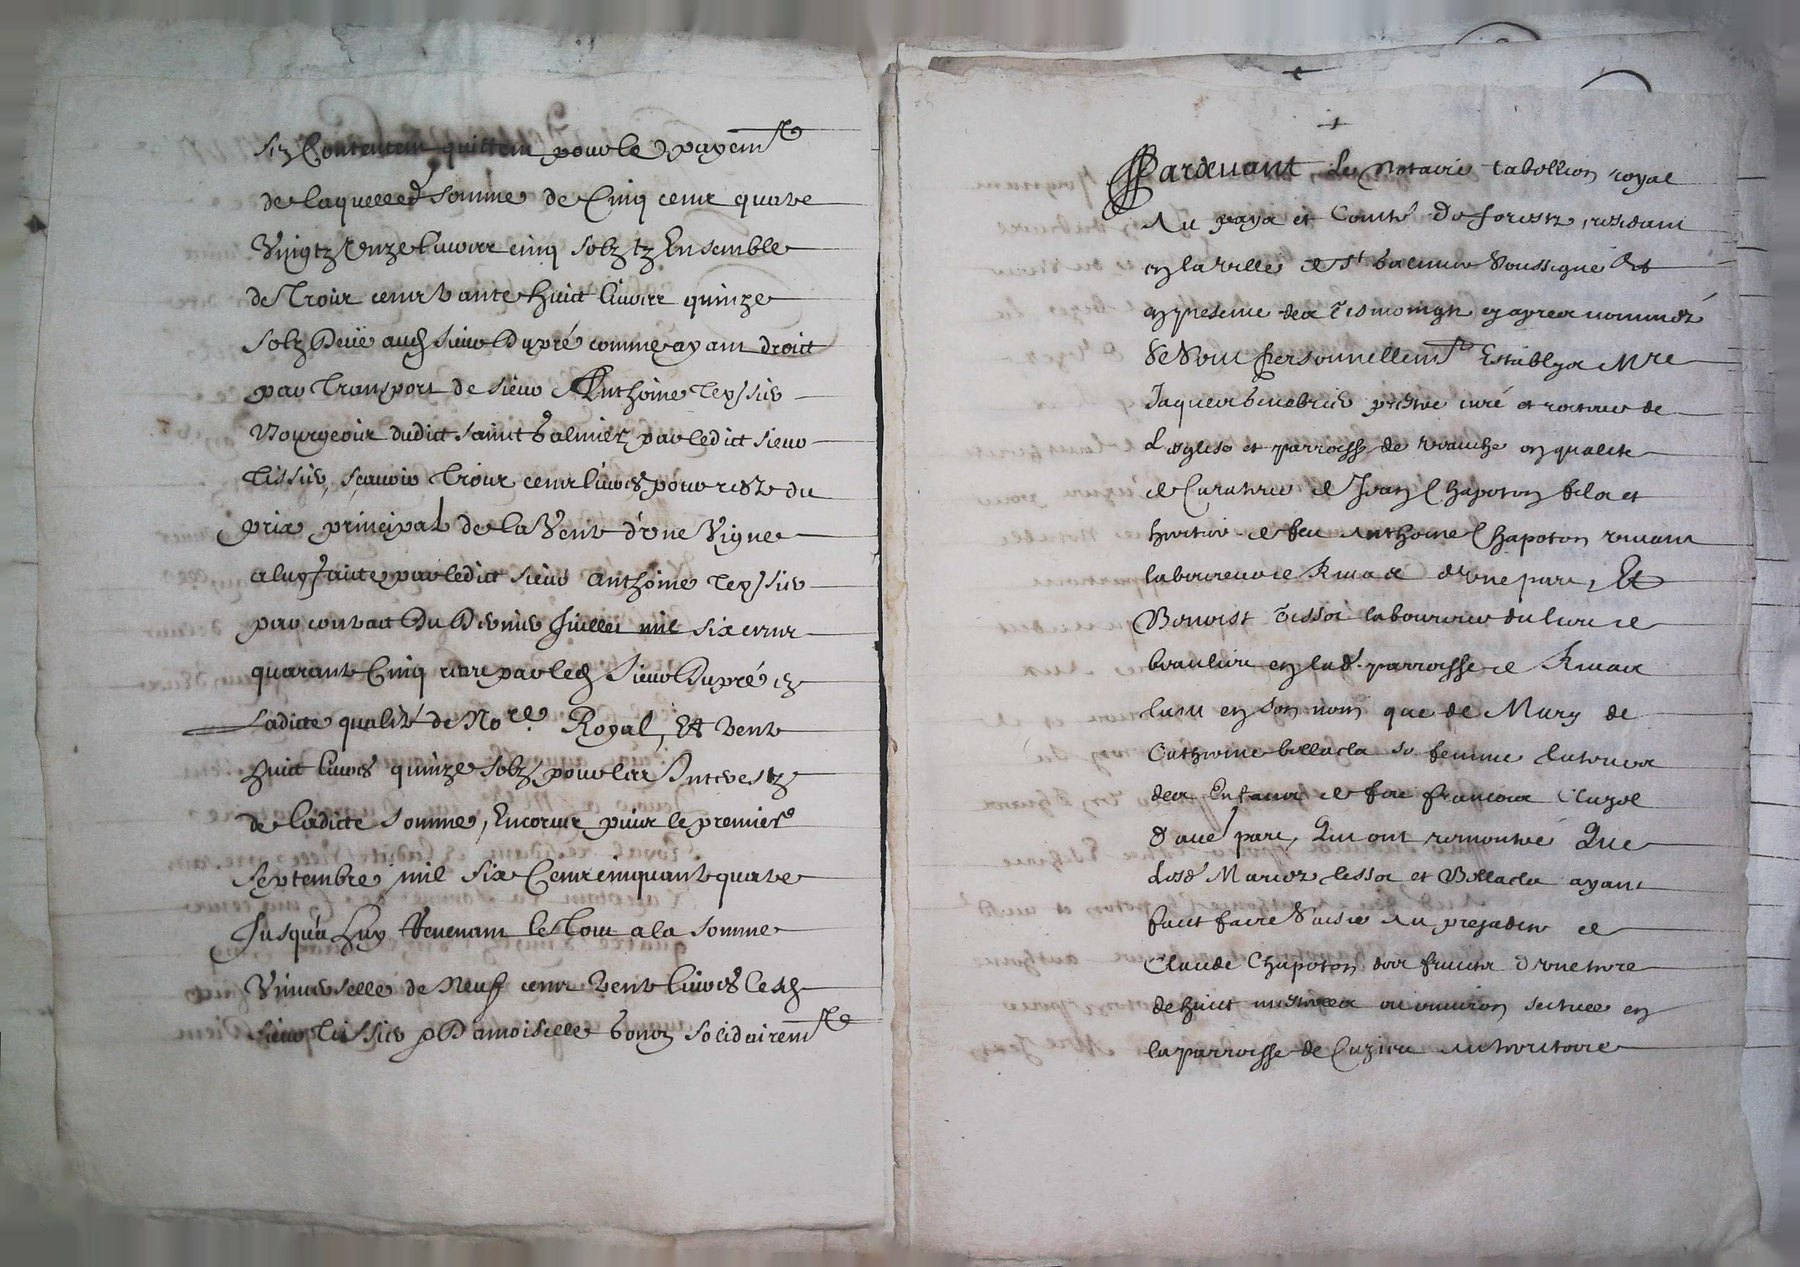 de laquelled. somme de Cinq cens quatre
Vingtz Unze livres cinq solz tz Ensemble
de Trois cens trante huict livres quinze
solz Deüe aud sieur Dupré comme ayant droict
par Transport de sieur Anthoine Teyssier
Bourgeois dudict sainct Galmier, par ledict sieur
Tissier, sçavoir Trois cens livres pour reste du
prix principal de la Vente d'une Vigne
a luy faite par ledict sieur Anthoine Teyssier
par contract Du Dernier Juillet mil six cens
quarante Cinq receu par led sieur Dupré en
Ladicte qualité de No.re Royal, Et trente
huict livres quinze solz, pour les Interestz
de ladicte somme, Encourus puis le premier
Septembre mil six Cens cinquante quatre
Jusqu'a huy Revenant le Tout a la somme
Universelle de Neuf cens trente livres Lesd
sieur Tissier & Damoiselle solidairemt
Pardevant Le Notaire tabellion royal
Au pays et Comté De forestz, residant
en la ville de St Galmier Soussigné Et
en presence des Tesmoings cy apres nommés
Se sont Personnellemt Establys Mre
Jaques prestre curé et recteur de
L'eglise et parroisse de en qualité
de Curateur de Jean Chapoton fils et
heritier de feu Anthoine Chapoton vivant
laboureur de Rivas d'une part, Et
Benoist Tissot laboureur du lieu de
beaulieu en lad. parroisse de Rivas
tant en son nom que de Mary de
Catherine sa femme
des Enfans de feu Francois Cluzel
D'autre part, Qui ont remontré Que
Lesd Mariez Tissot et ayant
faict faire Saisie Au prejudice de
Claude Chapoton des fruicts D'une terre
de huict mestrees ou environ scituee en
la parroisse de Cuzieu Au territoire